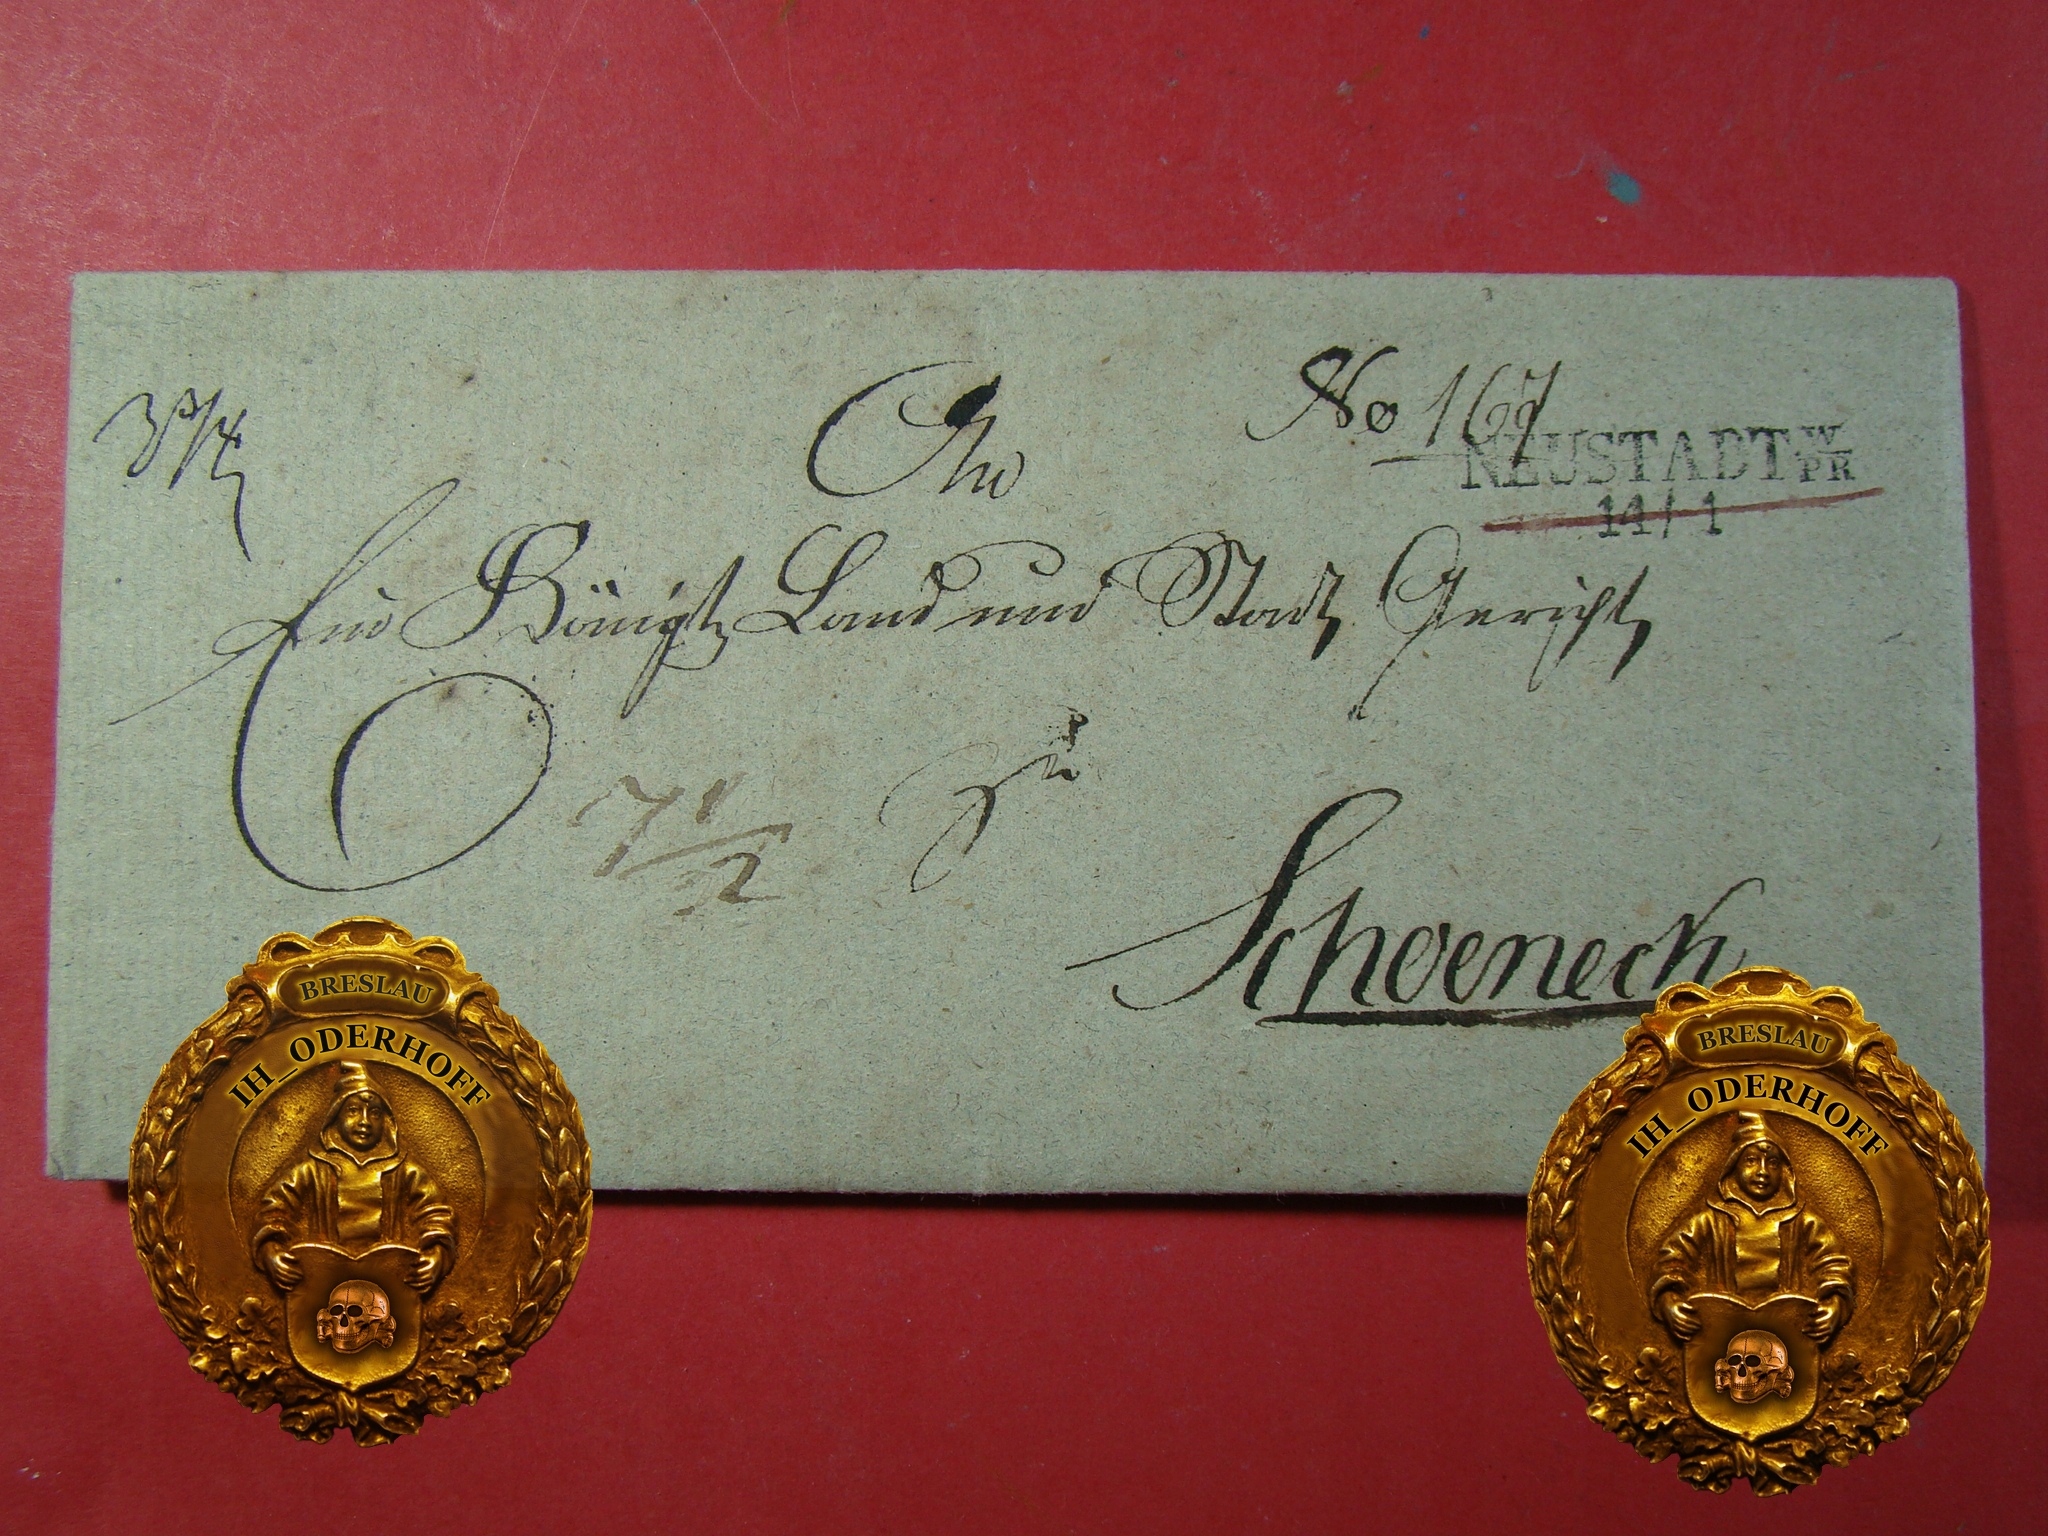 No 167
NEUSTADT W/PR
11/1
An
Ein Königl Land und Stadt Gericht
7 1/2
zu
Schoeneck
BRESLAU
IH_ODERHOFF
BRESLAU
IH_ODERHOFF